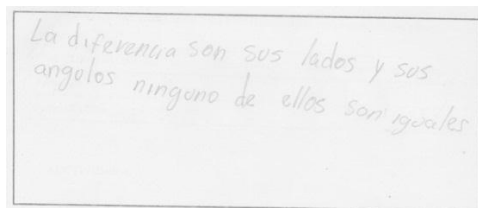 La diferencia son sus lados y sus
angulos ninguno de ellos son iguales